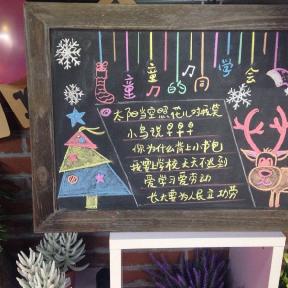 童童的同学会
太阳当空照花儿对我笑
小鸟说早早早
你为什么背上小书包
我要上学校天天不迟到
爱学习爱劳动
长大要为人民立功劳